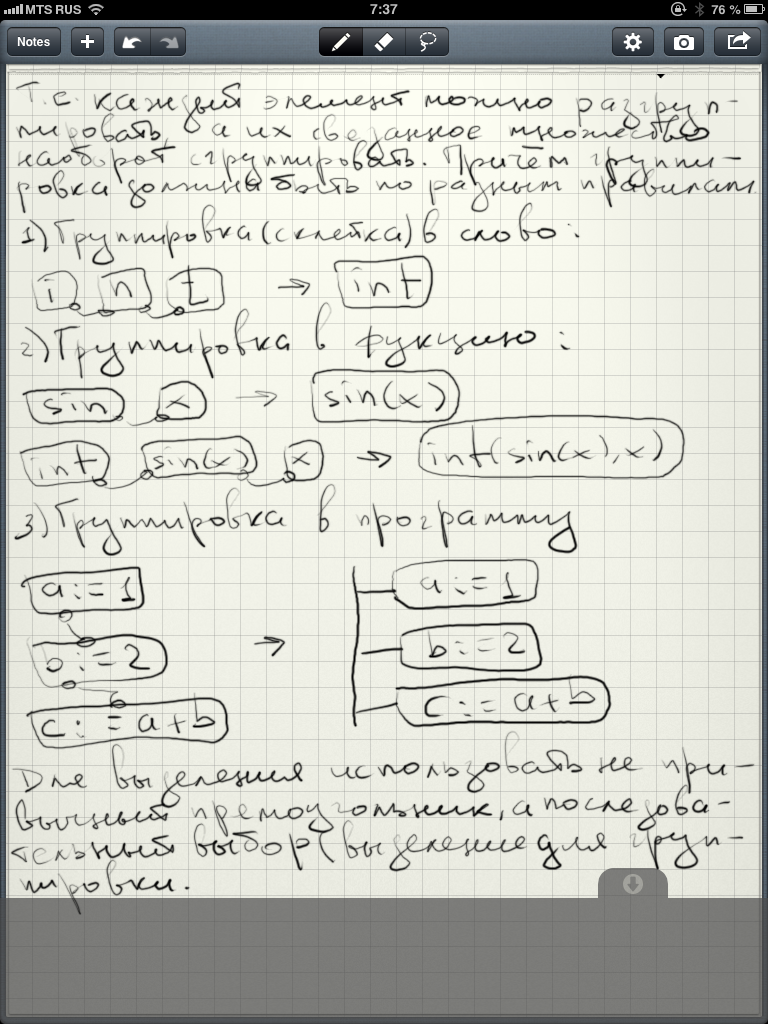 MTS RUS 7:37 76 %
Notes
Т.е. каждый элемент можно разгруп-
пировать, а их связанное множество
наоборот сгруппировать. Причём группи-
ровка должна быть по разным правилам
1) Группировка (склейка) в слово:
i n t → int
2) Группировка в фукцию:
sin x → sin(x)
int sin(x) x → int(sin(x),x)
3) Группировка в программу
a:=1 a:=1
b:=2 → b:=2
c:=a+b c:=a+b
Для выделения использовать не при-
вычный прямоугольник, а последова-
тельный выбор (выделение для груп-
пировки.